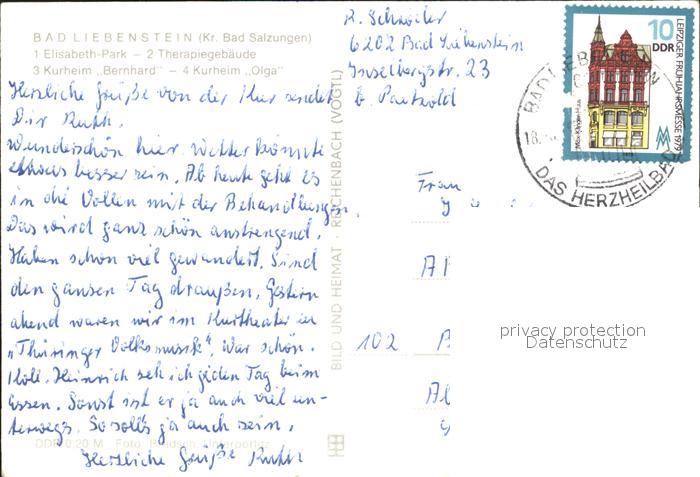 BAD LIEBENSTEIN (Kr. Bad Salzungen)
1 Elisabeth-Park – 2 Therapiegebäude
3 Kurheim „Bernhard“ – 4 Kurheim „Olga“
Herzliche Grüße von der Kur sendet
Dir Ruth.
Wunderschön hier. Wetter könnte
etwas besser sein. Ab heute geht es
in die Vollen mit der Behandlungen.
Das wird ganz schön anstrengend.
Haben schon viel gewandert. Sind
den ganzen Tag draußen. Gestern
abend waren wir im Kurtheater in
„Thüringer Volksmusik“, War schön.
Koll. Heinrich seh ich jeden Tag beim
Essen. Sonst ist er ja auch viel un-
terwegs. So solls ja auch sein.
Herzliche Grüße Ruth
DDR 0,20 M Foto:
BILD UND HEIMAT REICHENBACH (VOGTL)
R.
6202 Bad Liebenstein
Inselbergstr. 23
b.
10
DDR
LEIPZIGER FRÜHJAHRSMESSE 1979
BAD LIEBENSTEIN
18.
DAS HERZHEILBAD
Frau
102 B
privacy protection
Datenschutz